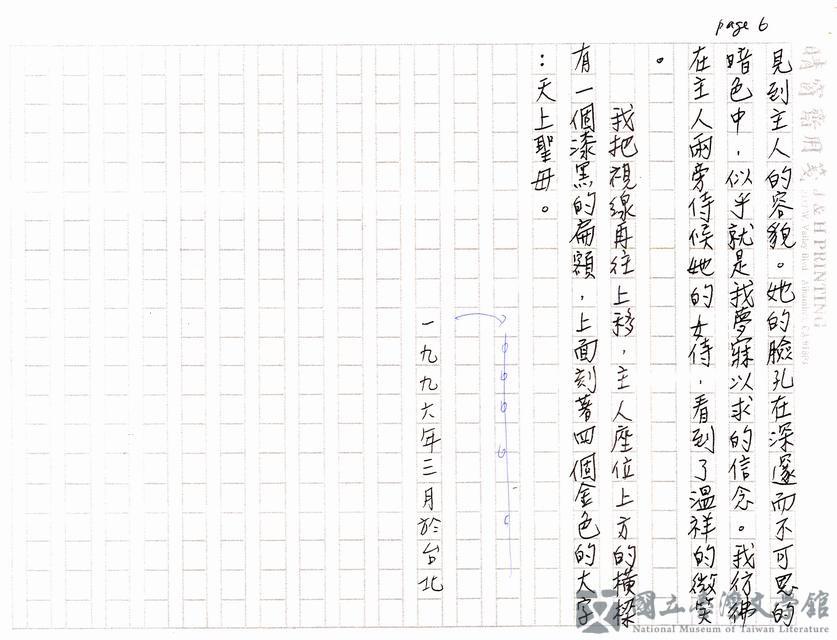 page 6
晴窗齋用箋 J & H PRINTING
見到主人的容貌。她的臉孔在深邃而不可思的
暗色中，似乎就是我夢寐以求的信念。我彷彿
在主人兩旁侍候她的女侍，看到了溫祥的微笑
。
我把視線再往上移，主人座位上方的橫樑
有一個漆黑的扁額，上面刻著四個金色的大字
：天上聖母。
一九九六年三月於台北
國立臺灣文學館
National Museum of Taiwan Literature